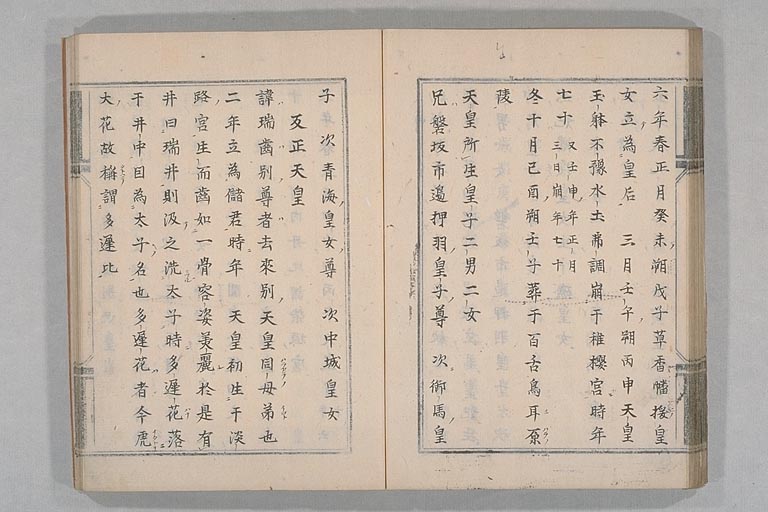 六年春正月癸未朔戊子草香幡梭皇
女立為皇后　三月壬午朔丙申天皇
玉躰不豫水土弗調崩于稚櫻宮時年
七十　三日崩年七十　又壬申年正月
冬十月己酉朔壬子葬于百舌鳥耳原
陵
天皇所生皇子二男二女
兄磐坂市邊押羽皇子尊　次御馬皇
子　次青海皇女尊　次中城皇女
反正天皇
諱瑞齒別尊者去來別天皇同母弟也
二年立為儲君時年　天皇初生于淡
路宮生而齒如一骨容姿美麗於是有
井曰瑞井則汲之洗太子時多遲花落
于井中因為太子名也多遲花者今虎
大花故稱謂多遲比